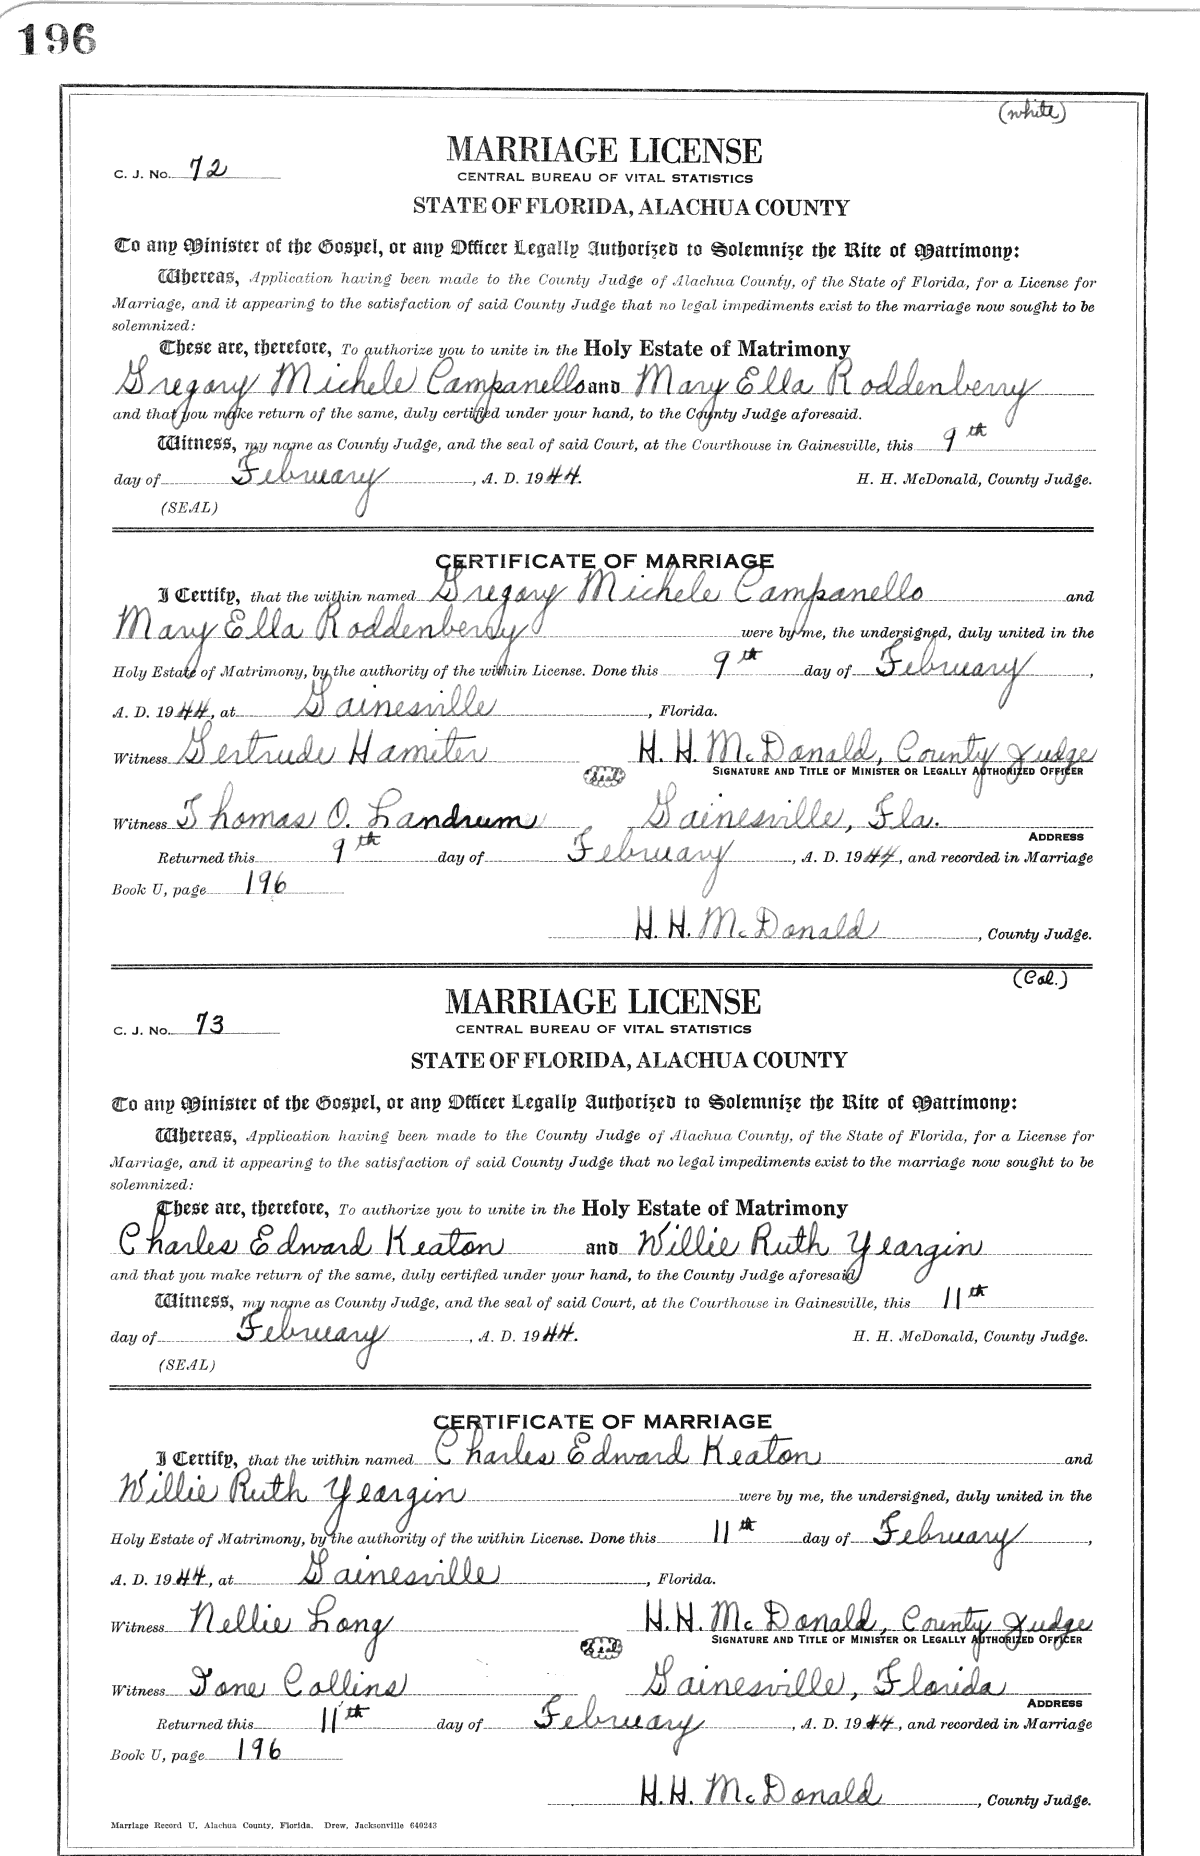 196
(white)
MARRIAGE LICENSE
C. J. No. 72
CENTRAL BUREAU OF VITAL STATISTICS
STATE OF FLORIDA, ALACHUA COUNTY
To any Minister of the Gospel, or any Officer Legally Authorized to Solemnize the Rite of Matrimony:
Whereas, Application having been made to the County Judge of Alachua County, of the State of Florida, for a License for
Marriage, and it appearing to the satisfaction of said County Judge that no legal impediments exist to the marriage now sought to be
solemnized:
These are, therefore, To authorize you to unite in the Holy Estate of Matrimony
Gregory Michele Campanello and Mary Ella Roddenberry
and that you make return of the same, duly certified under your hand, to the County Judge aforesaid.
Witness, my name as County Judge, and the seal of said Court, at the Courthouse in Gainesville, this 9th
day of February, A. D. 1944. H. H. McDonald, County Judge.
(SEAL)
CERTIFICATE OF MARRIAGE
I Certify, that the within named Gregory Michele Campanello and
Mary Ella Roddenberry were by me, the undersigned, duly united in the
Holy Estate of Matrimony, by the authority of the within License. Done this 9th day of February,
A. D. 1944, at Gainesville, Florida.
Witness Gertrude Hamiter H. H. McDonald, County Judge
Seal SIGNATURE AND TITLE OF MINISTER OR LEGALLY AUTHORIZED OFFICER
Witness Thomas O. Landrum Gainesville, Fla.
ADDRESS
Returned this 9th day of February, A. D. 1944, and recorded in Marriage
Book U, page 196
H. H. McDonald, County Judge.
(Col.)
MARRIAGE LICENSE
C. J. No. 73
CENTRAL BUREAU OF VITAL STATISTICS
STATE OF FLORIDA, ALACHUA COUNTY
To any Minister of the Gospel, or any Officer Legally Authorized to Solemnize the Rite of Matrimony:
Whereas, Application having been made to the County Judge of Alachua County, of the State of Florida, for a License for
Marriage, and it appearing to the satisfaction of said County Judge that no legal impediments exist to the marriage now sought to be
solemnized:
These are, therefore, To authorize you to unite in the Holy Estate of Matrimony
Charles Edward Keaton and Willie Ruth Yeargin
and that you make return of the same, duly certified under your hand, to the County Judge aforesaid.
Witness, my name as County Judge, and the seal of said Court, at the Courthouse in Gainesville, this 11th
day of February, A. D. 1944. H. H. McDonald, County Judge.
(SEAL)
CERTIFICATE OF MARRIAGE
I Certify, that the within named Charles Edward Keaton and
Willie Ruth Yeargin were by me, the undersigned, duly united in the
Holy Estate of Matrimony, by the authority of the within License. Done this 11th day of February,
A. D. 1944, at Gainesville, Florida.
Witness Nellie Long H. H. McDonald, County Judge
Seal SIGNATURE AND TITLE OF MINISTER OR LEGALLY AUTHORIZED OFFICER
Witness Ione Collins Gainesville, Florida
ADDRESS
Returned this 11th day of February, A. D. 1944, and recorded in Marriage
Book U, page 196
H. H. McDonald, County Judge.
Marriage Record U, Alachua County, Florida. Drew, Jacksonville 640243